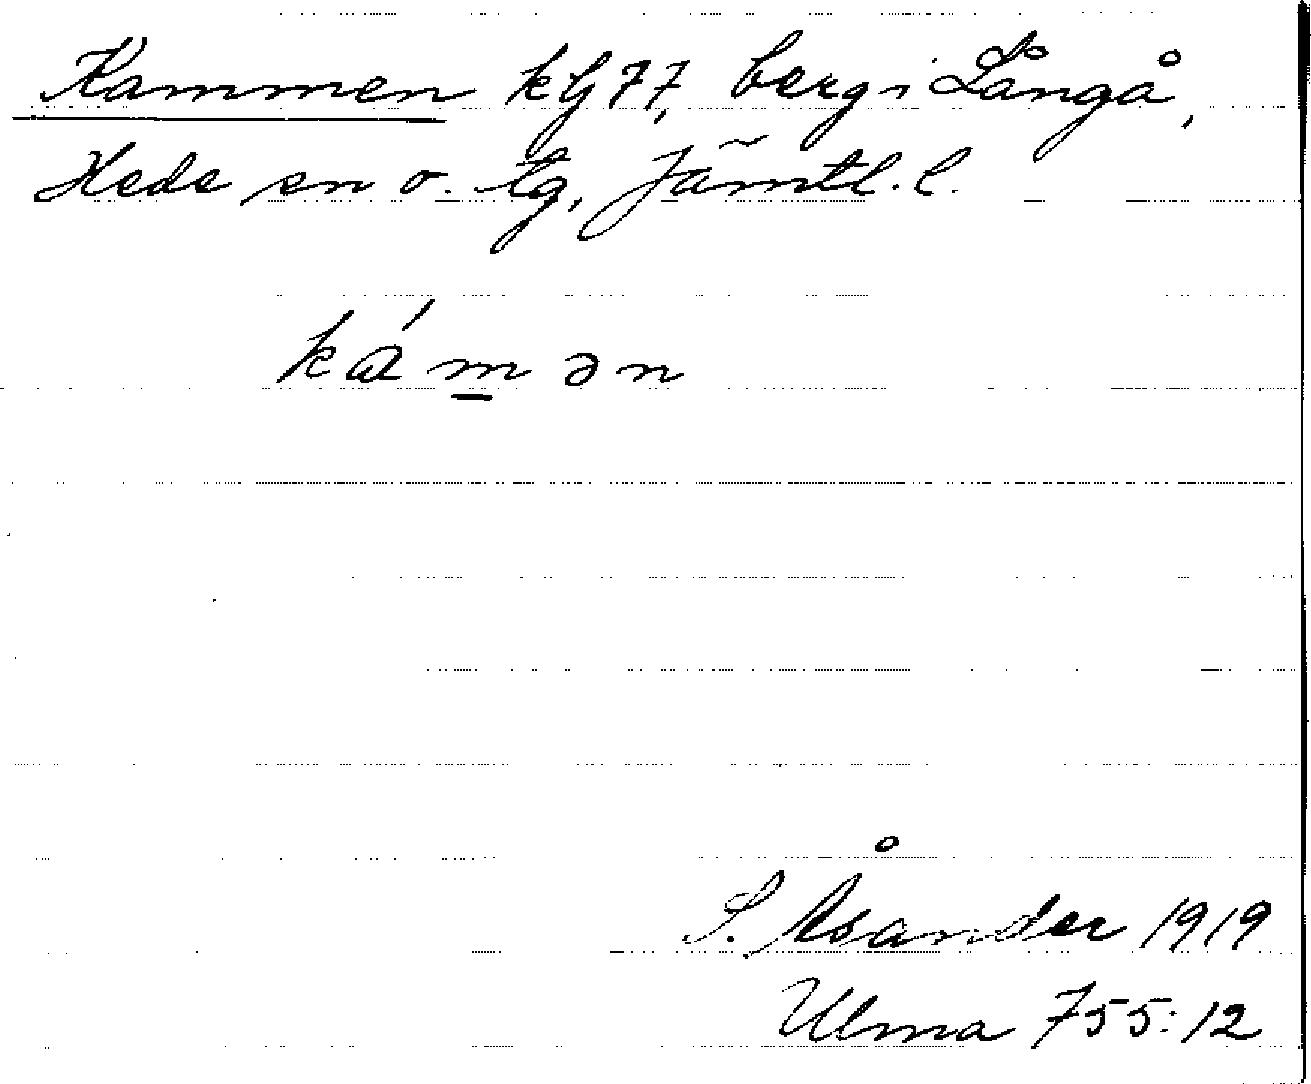 Kammen kG77, berg i Långå,
Hede sn o. tg, Jämtl. l.
ká m̲ ə n
S. Åsander 1919
Ulma 755:12